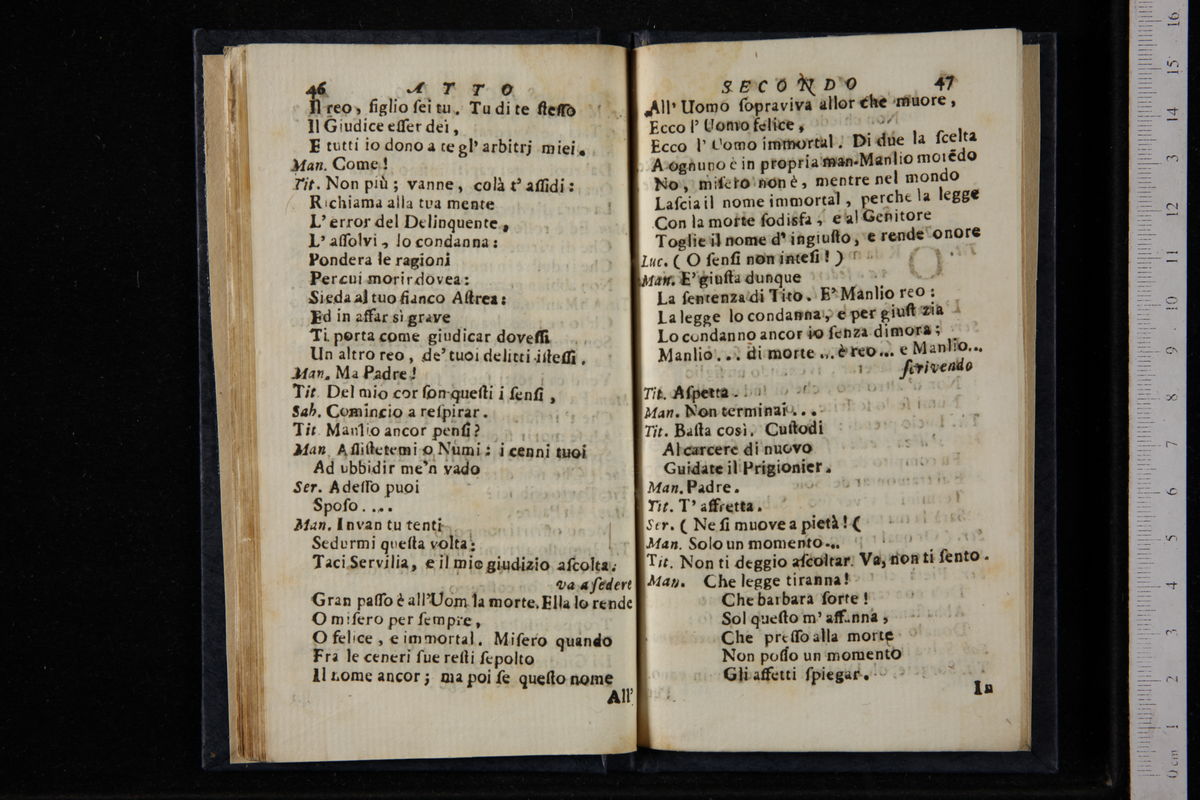 46 ATTO
Il reo, figlio sei tu. Tu di te stesso
Il Giudice esser dei,
E tutti io dono a te gl' arbitrj miei.
Man. Come!
Tit. Non più; vanne, colà t' assidi:
Richiama alla tua mente
L' error del Delinquente,
L' assolvi, lo condanna:
Pondera le ragioni
Per cui morir dovea:
Sieda al tuo fianco Astrea:
Ed in affar sì grave
Ti porta come giudicar dovessi
Un altro reo, de' tuoi delitti istessi.
Man. Ma Padre!
Tit. Del mio cor son questi i sensi,
Sab. Comincio a respirar.
Tit. Manlio ancor pensi?
Man. Assistetemi o Numi: i cenni tuoi
Ad ubbidir me'n vado
Ser. Adesso puoi
Sposo....
Man. Invan tu tenti
Sedurmi questa volta:
Taci Servilia, e il mio giudizio ascolta.
va a sedere
Gran passo è all'Uom la morte. Ella lo rende
O misero per sempre,
O felice, e immortal. Misero quando
Fra le ceneri sue resti sepolto
Il nome ancor; ma poi se questo nome
All'
SECONDO 47
All' Uomo sopraviva allor che muore,
Ecco l' Uomo felice,
Ecco l' Uomo immortal. Di due la scelta
A ognuno è in propria man. Manlio moiēdo
No, misero non è, mentre nel mondo
Lascia il nome immortal, perche la legge
Con la morte sodisfa, e al Genitore
Toglie il nome d' ingiusto, e rende onore
Luc. (O sensi non intesi!)
Man. E' giusta dunque
La sentenza di Tito. E' Manlio reo:
La legge lo condanna, e per giust zia
Lo condanno ancor io senza dimora;
Manlio... di morte... è reo... e Manlio...
scrivendo
Tit. Aspetta.
Man. Non terminai...
Tit. Basta così. Custodi
Al carcere di nuovo
Guidate il Prigionier.
Man. Padre.
Tit. T' affretta.
Ser. ( Ne si muove a pietà! (
Man. Solo un momento...
Tit. Non ti deggio ascoltar. Va, non ti sento.
Man. Che legge tiranna!
Che barbara sorte!
Sol questo m' affanna,
Che presso alla morte
Non posso un momento
Gli affetti spiegar.
In
0 cm 1 2 3 4 5 6 7 8 9 10 11 12 13 14 15 16